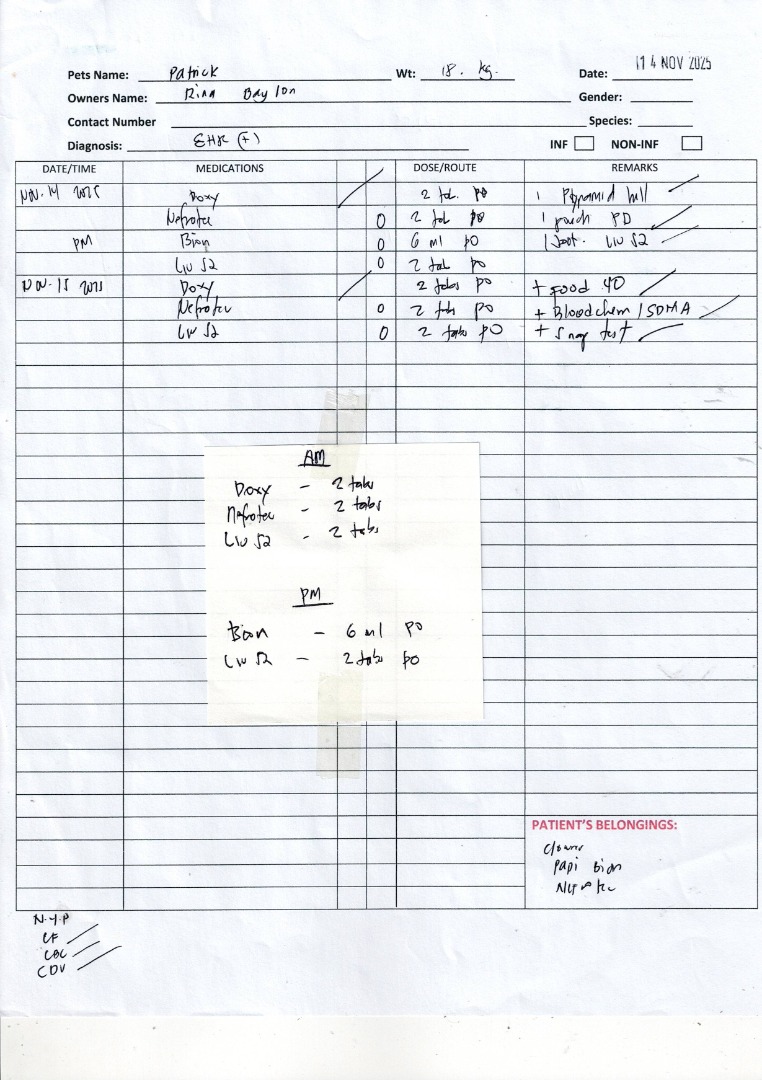 14 NOV 2025
Pets Name: Patrick Wt: 18. kg. Date:
Owners Name: Rina Baylon Gender:
Contact Number Species:
Diagnosis: EHR (+) INF NON-INF
DATE/TIME MEDICATIONS DOSE/ROUTE REMARKS
NOV. 14 2025 Doxy 2 tab. po 1
Nefrotec 0 2 tab po 1 pouch PD
PM Bion 0 6 ml po 1 Liv 52
Liv 52 0 2 tab po
NOV. 15 2025 Doxy 2 tabs po + food 40
Nefrotec 0 2 tabs po + Bloodchem / SDMA
Liv 52 0 2 tabs po + Snap test
AM
Doxy - 2 tabs
Nefrotec - 2 tabs
Liv 52 - 2 tabs
PM
Bion - 6 ml po
Liv 52 - 2 tabs po
PATIENT'S BELONGINGS:
Papi Bion
Nefrotec
N.Y.P
CF
CBC
CDV